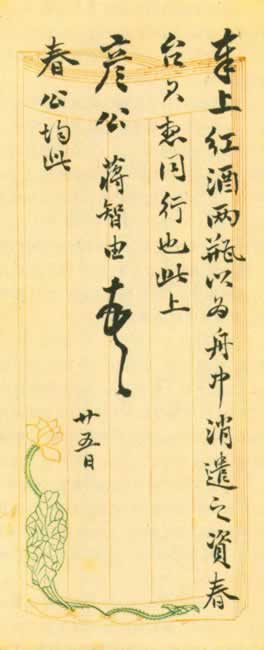 奉上红酒两瓶以为舟中消遣之资春
台同行也此上
彦公 蒋智由
廿五日
春公均此